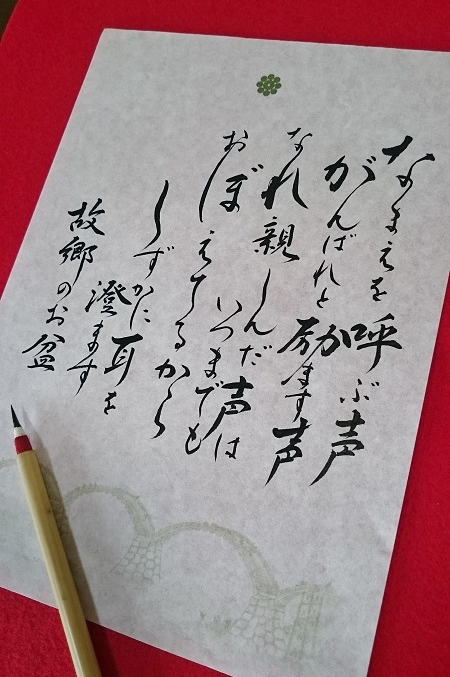 なまえを呼ぶ声
がんばれと励ます声
なれ親しんだ声は
いつまでも
おぼえてるから
しずかに耳を
澄ます
故郷のお盆